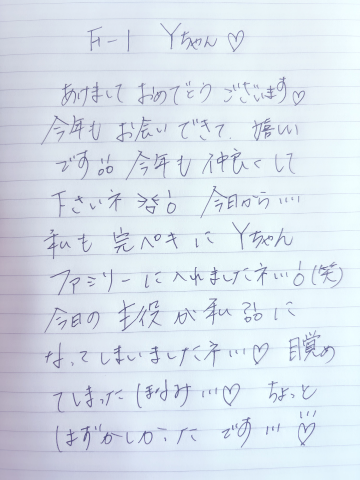 F-1 Yちゃん♡
あけまして おめでとう ございます♡
今年も お会いできて 嬉しい
です 今年も仲良くして
下さいネ 今日から....
私も 完ペキに Yちゃん
ファミリーに入れましたネ...(笑)
今日の 主役が私 に
なってしまいましたネ...♡ 目覚め
てしまった ほなみ...♡ ちょっと
はずかしかった です...♡